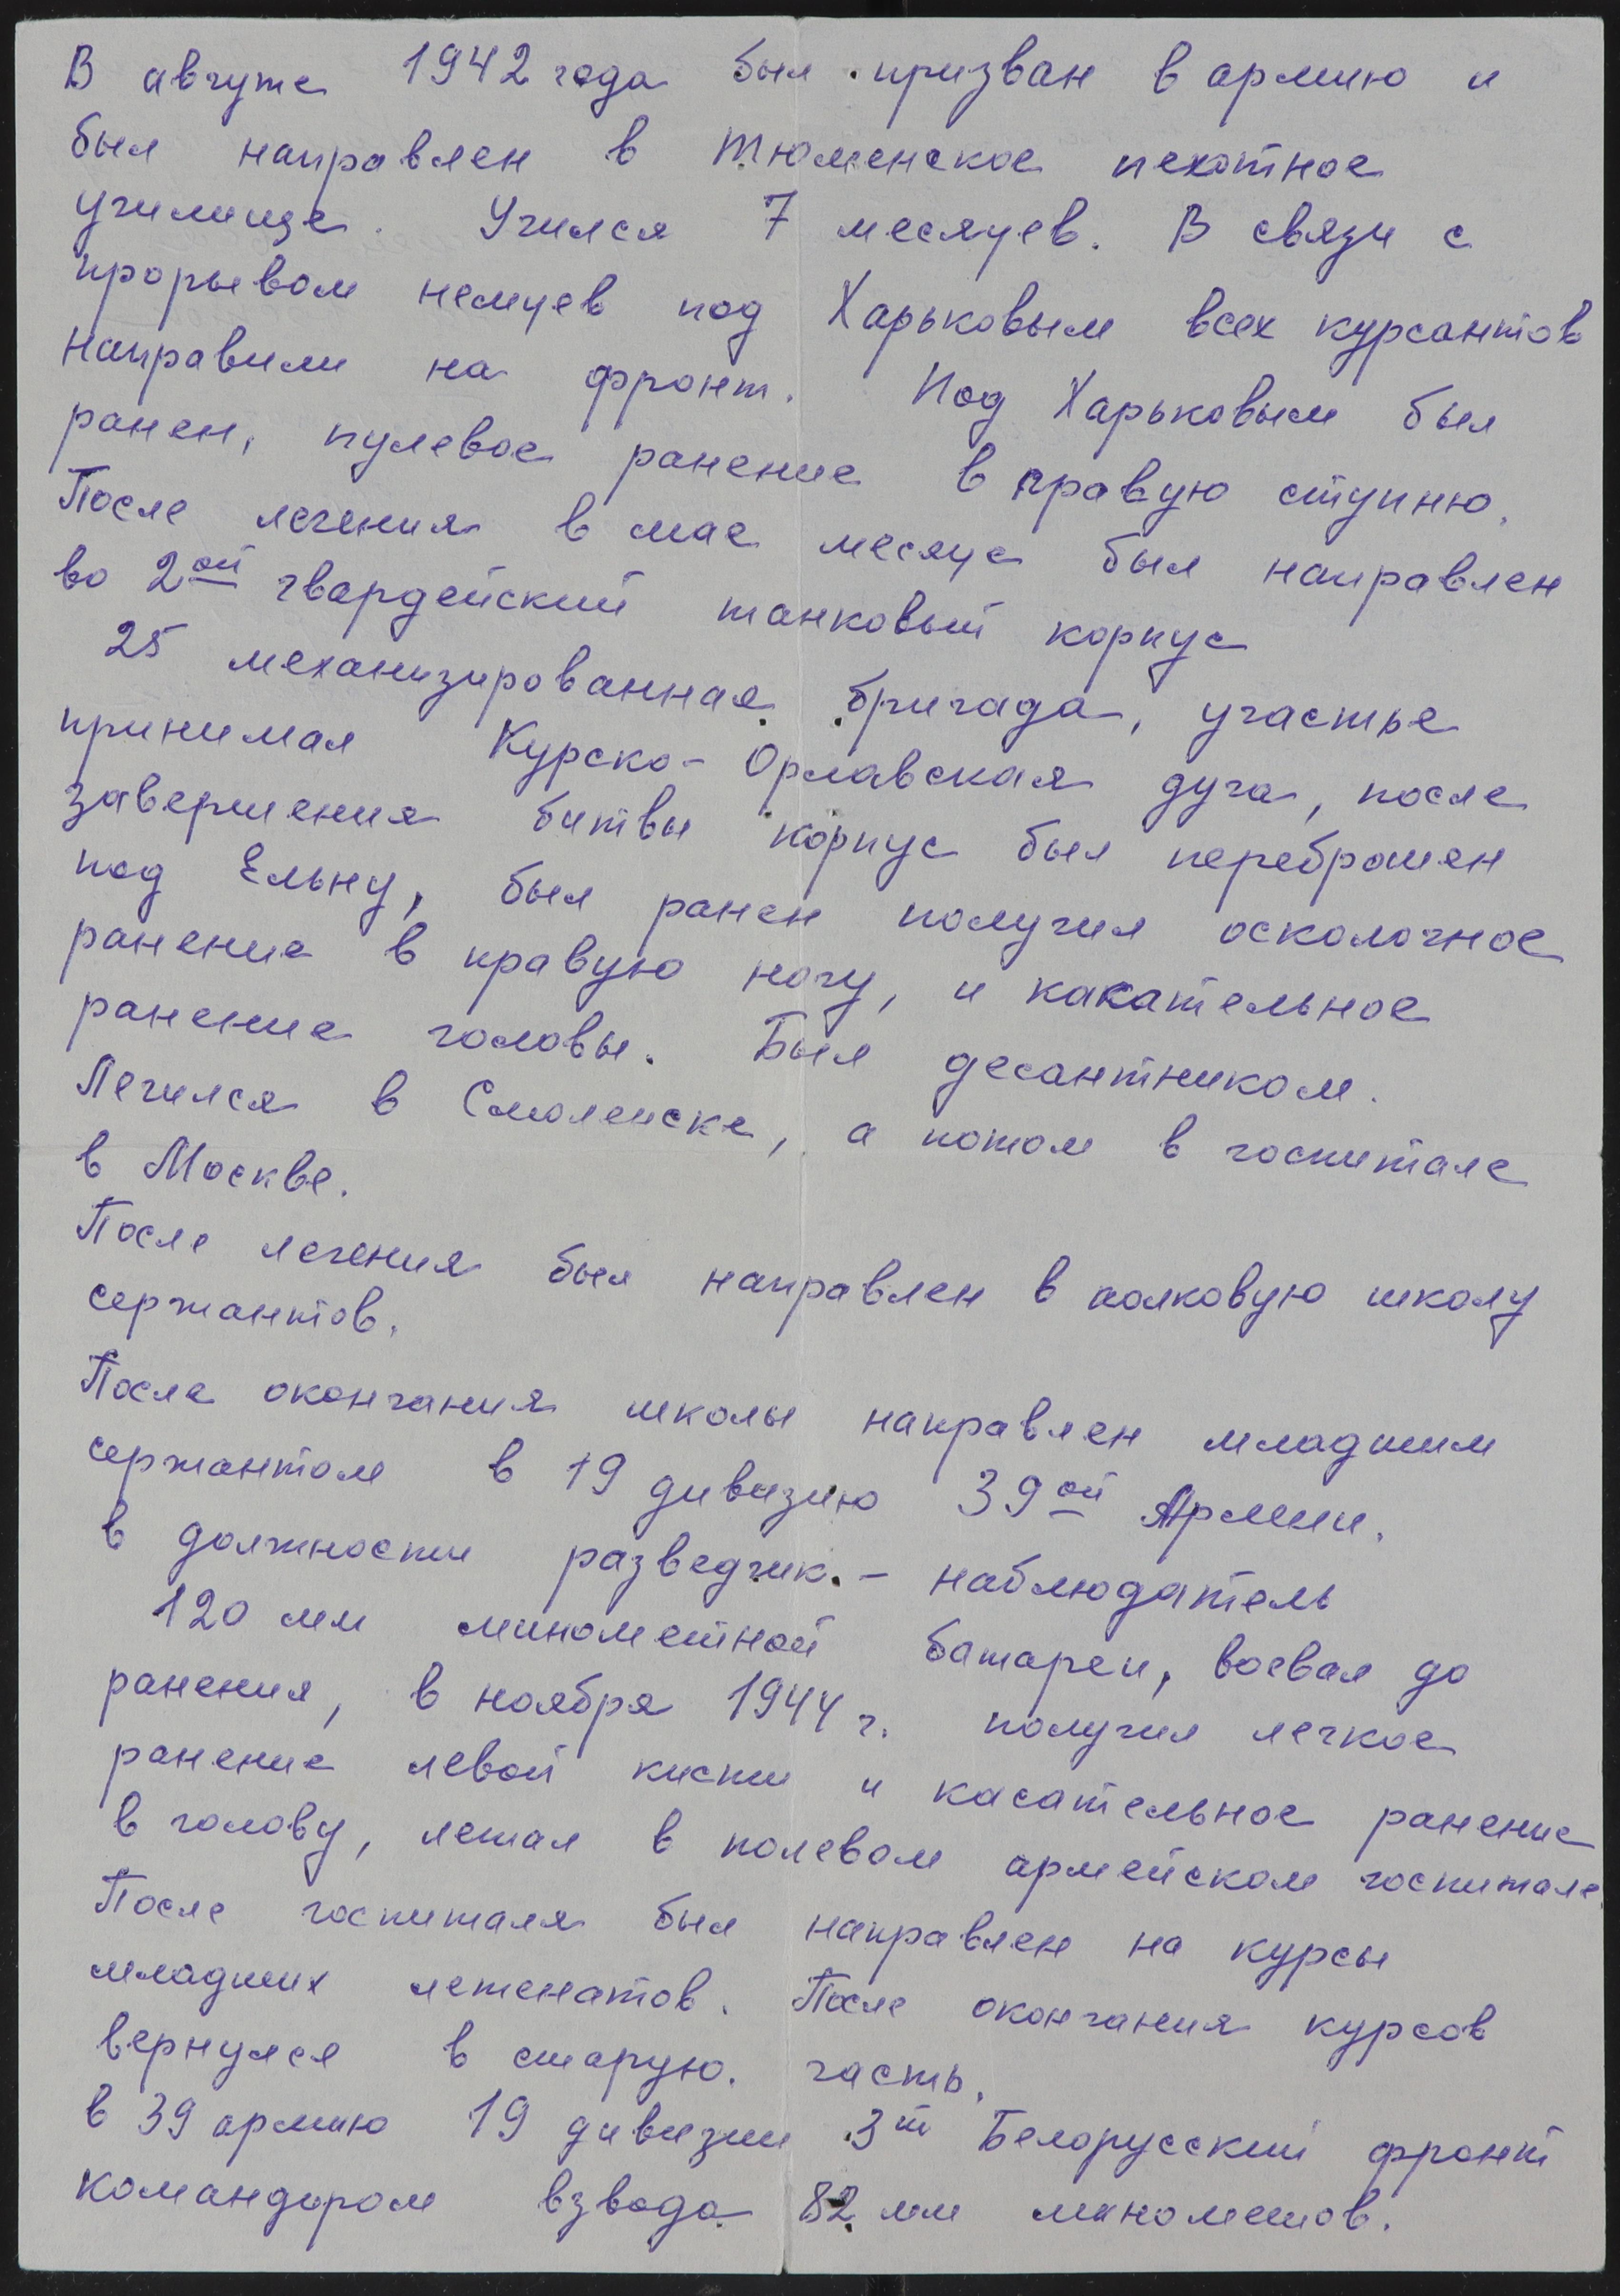 В августе 1942 года был призван в армию и
был направлен в Тюменское пехотное
училище. Учился 7 месяцев. В связи с
прорывом немцев под Харьковым всех курсантов
направили на фронт. Под Харьковым был
ранен, пулевое ранение в правую ступню.
После лечения в мае месяце был направлен
во 2ой гвардейский танковый корпус
25 механизированная бригада, участье
принимал Курско-Орлавская дуга, после
завершения битвы корпус был переброшен
под Ельну, был ранен получил осколочное
ранение в правую ногу, и какательное
ранение головы. Был десантником.
Лечился в Смоленске, а потом в госпитале
в Москве.
После лечения был направлен в полковую школу
сержантов.
После окончания школы направлен младшим
сержантом в 19 дивизию 39ой Армии.
в должности разведчик - наблюдатель
120 мм минометной батареи, воевал до
ранения, в ноября 1944 г. получил легкое
ранение левой кисти и касательное ранение
в голову, лежал в полевом армейском госпитале.
После госпиталя был направлен на курсы
младших летенатов. После окончания курсов
вернулся в старую. часть.
в 39 армию 19 дивизии 3й Белорусский фронт
командиром взвода 82 мм минометов.